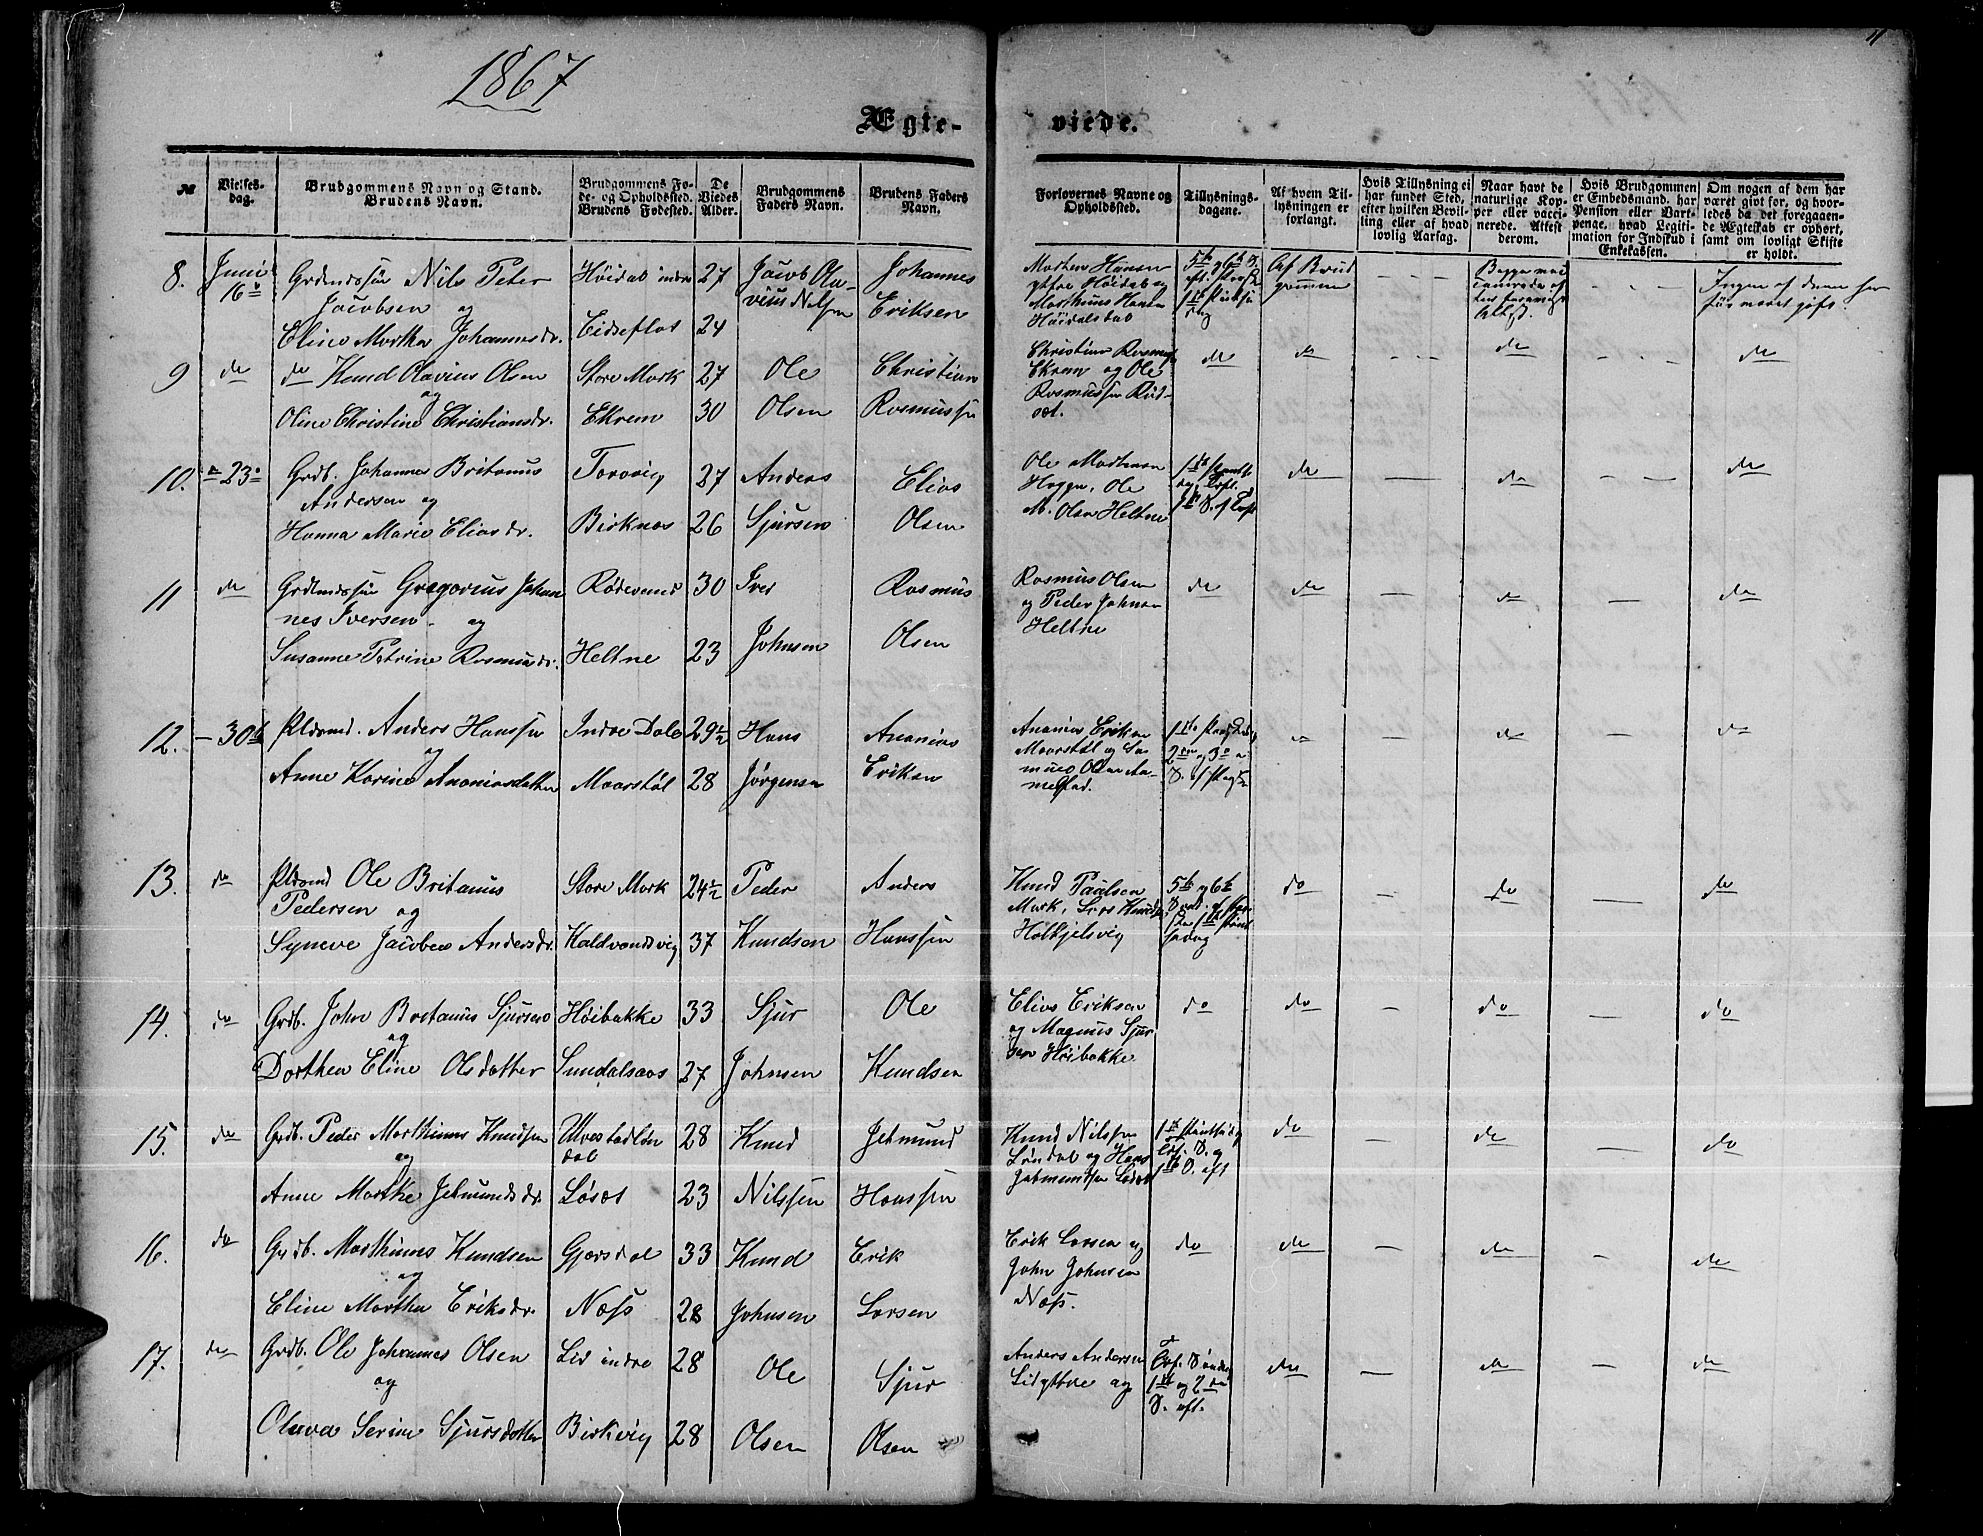 1867
11
Ægte-
viede.
№
Vielses-
dag.
Brudgommens Navn og Stand.
Brudens Navn.
Brudgommens Fø-
de- og Opholdssted.
Brudens Fødested.
De
Viedes
Alder.
Brudgommens
Faders Navn.
Brudens Faders
Navn.
Forlovernes Navne og
Opholdssted.
Tillysnings-
dagene.
Af hvem Til-
lysningen er
forlangt.
Hvis Tillysning ei
har fundet Sted,
efter hvilken Bevil-
ling eller af hvad
lovlig Aarsag.
Naar havt de
naturlige Kop-
per eller vacci-
nerede. Attest
derom.
Hvis Brudgommen
er Embedsmand, har
Pension eller Vart-
penge, hvad Legiti-
mation for Indskud i
Enkekassen.
Om nogen af dem har
været givt før, og hvor-
ledes da det foregaaen-
de Ægteskab er ophørt,
samt om lovligt Skifte
er holdt.
8. Juni 16de
Nils Peter
Jacobsen og
Eline Marthe Johannesdr.
Høidal indre 27
Eidseflot 24
Jacob Ola-
vius Nilsen
Johannes
Eriksen
Mathen Hansen
ytre Høidal og
Marthinus Hansen
Høidalsbak
Af Brud
gommen
Ingen af dem har
før været gift.
9 do do Knud Olavius Olsen
og
Oline Christine Christiansdr.
Store Mork 27
Ekrem 30
Ole
Olsen
Christian
Rasmussen
Christian Rasmus
Ekrem og Ole
Rasmussen Rød-
sæt.
do do do do
10. 23 Grdb. Johannes Britanus
Andersen og
Hanna Marie Eliasdr.
Torvvig 27
Birknæs 26
Anders
Sjursen
Elias
Olsen
Ole Mathesen
Ole
M. Olsen Heltne
do do do
11 do Gregorius Johan
nes Iversen og
Susanne Petrine Rasmusdr.
Rødvand 30
Heltne 23
Iver
Johnsen
Rasmus
Olsen
Rasmus Olsen
og Peder Johnsen
Heltne
do do do do
12. 30 Anders Hanssen
og
Anne Karine Ananiasdatter
Indre Dale 29½
Maarstøl 28
Hans
Jørgensen
Ananias
Eriksen
Ananias Eriksen
Maarstøl og
Olsen Aa-
mestad.
do do do
13. do Ole Britanus
Pedersen og
Syneve Jacobea Andersdr.
Store Mork 24½
Kaldvandsvig 37
Peder
Knudsen
Anders
Hanssen
Knud Paulsen
Mork, Lars Knudsen
Holkjelsvig
5te og 6te
do do do
14. do Grdb. John Britanus Sjursen
og
Dorthea Eline Olsdatter
Høibakke 33
Sundalsaas 27
Sjur
Johnsen
Ole
Knudsen
Elias Eriksen
og Magnus Sjur
sen Høibakke
do do do do
15. do Grdb. Peder Marthinus Knudsen
og
Anne Marthe Jetmundsdr.
Ulvestadløn
dal 28
Løsæt 23
Knud
Nilssen
Jetmund
Hanssen
Knud Nilssen
Løndal og Hans
Jetmundsen Løsæt
do do do
16. do Grdb. Marthinus Knudsen
og
Eline Marthea Eriksdr.
Gjersdal 33
Næss 28
Knud
Johnsen
Erik
Larsen
Erik Larsen og
John Johnsen
Næss.
do do do do
17. do Grdb. Ole Johannes Olsen
og
Olava Serine Sjursdatter
Lid indre 28
Birkvig 28
Ole
Olsen
Sjur
Olsen
Anders Andersen
Lid ytre og
do do do